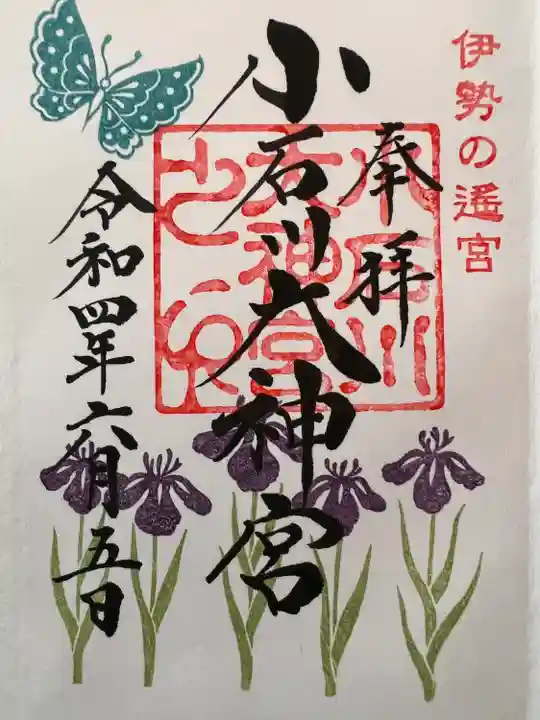 伊勢の遙宮
奉拝
小石川大神宮
小石川
大神宮
令和四年六月五日